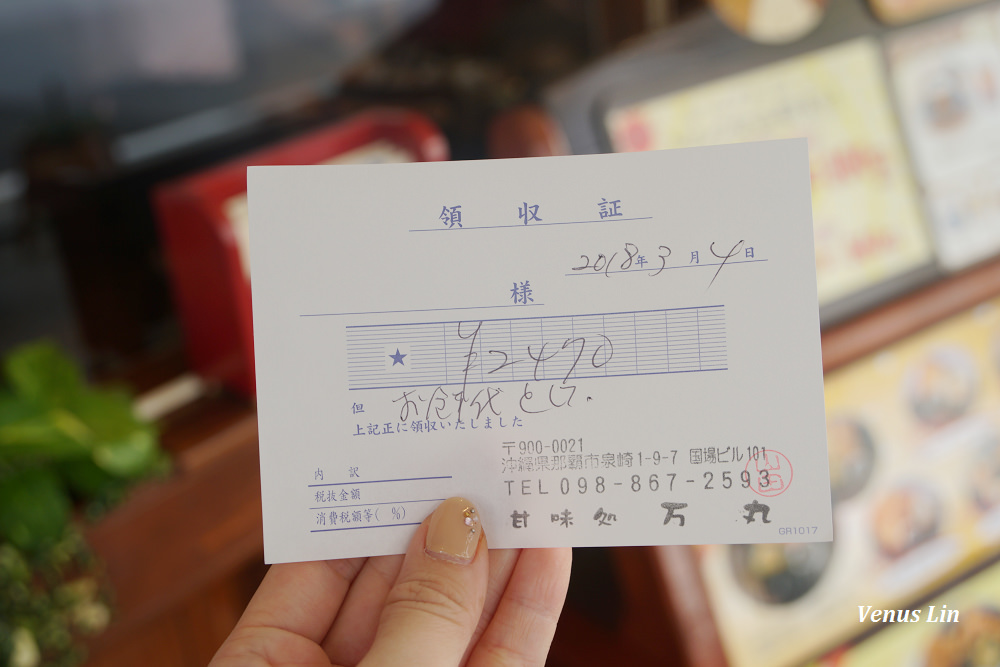 領収証
2018年3月4日
様
★ ¥2470
但 お食事代として.
上記正に領収いたしました
内訳
税抜金額
消費税額等( %)
〒900-0021
沖縄県那覇市泉崎1-9-7 国場ビル101
TEL098-867-2593
甘味処 万丸
GR1017
Venus Lin